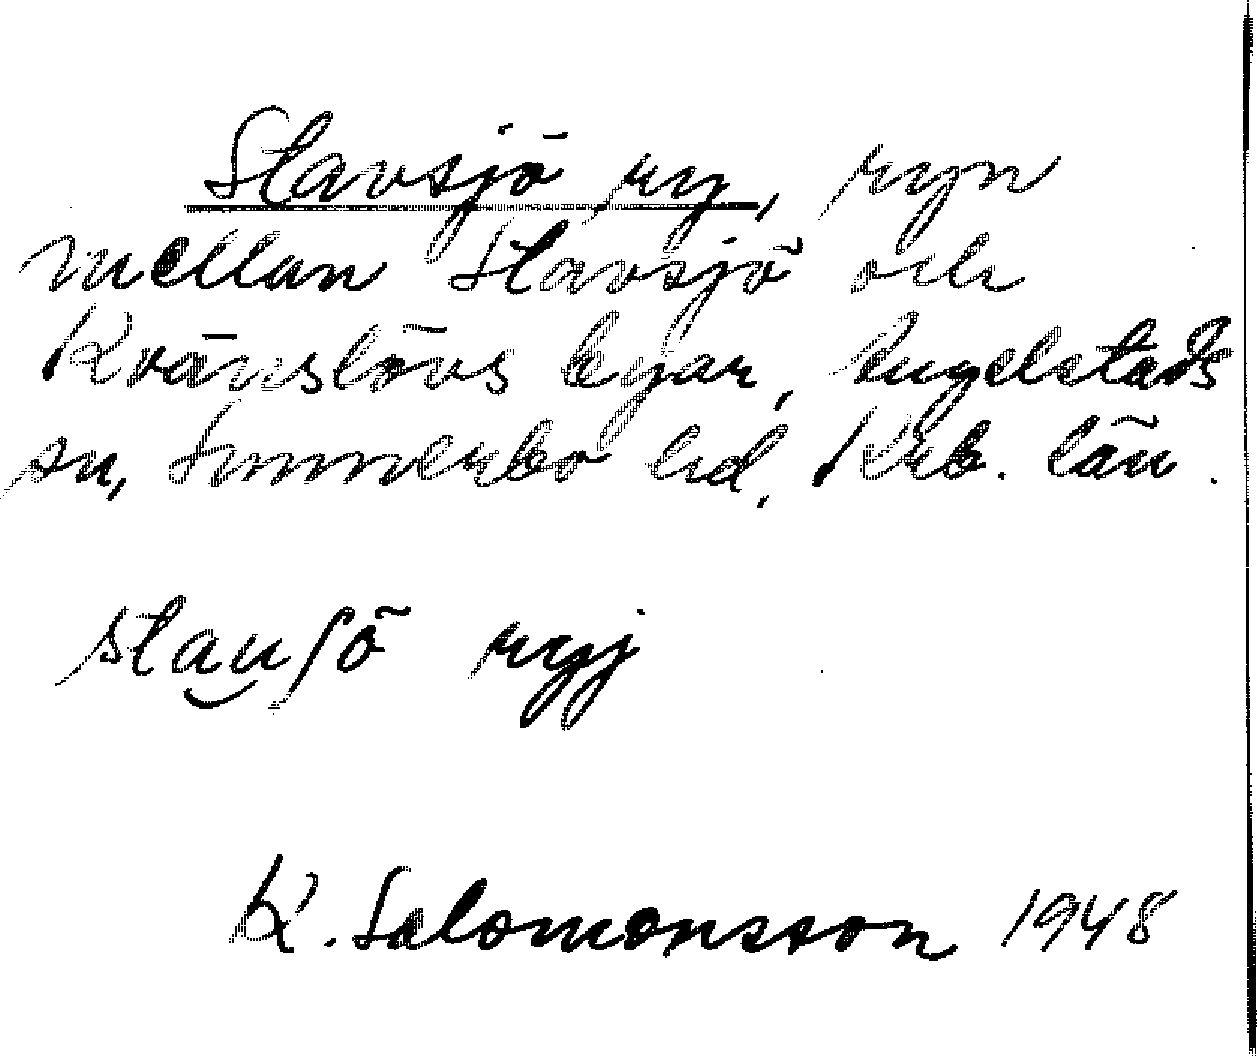 Stavsjö ry, ryn
mellan Stavsjö och
Kvänslövs byar, Angelstads
sn, Sunnerbo hd, Krb. län.
stau̮ʃö ryj
K. Salomonsson 1948